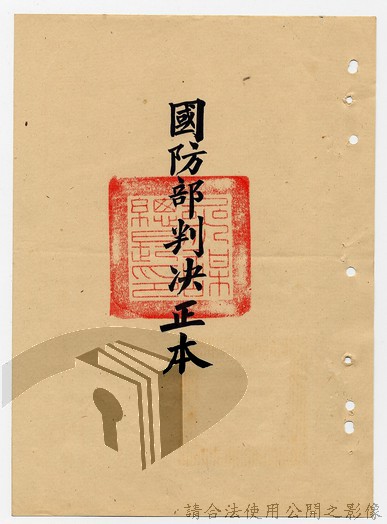 國防部判决正本
請合法使用公開之影像